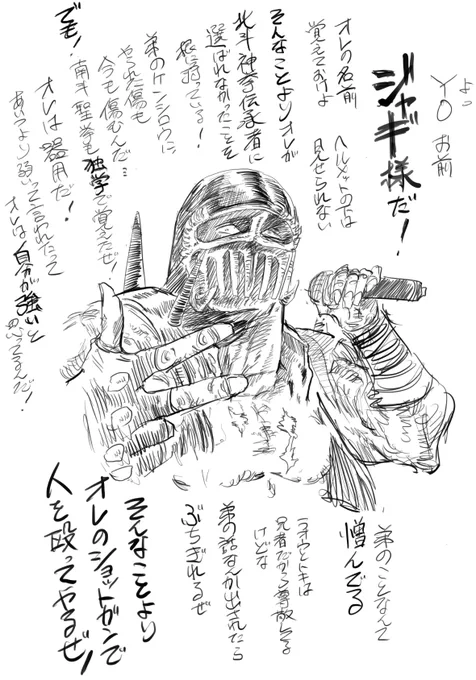 よっ
YO お前
ジャギ様だ!
オレの名前
覚えておけよ
ヘルメットの下は
見せられない
そんなことよりオレが
北斗神拳伝承者に
選ばれなかったことを
根に持っている!
弟のケンシロウに
やられた傷も
今も傷むんだ…
でも!
南斗聖拳も独学で覚えたぜ!
オレは器用だ!
あいつより弱いって言われたって
オレは自分が強いと
思ってるんだ!
弟のことなんて
憎んでる
ラオウとトキは
兄者だから尊敬してる
けどな
弟の話なんか出されたら
ぶちぎれるぜ
そんなことより
オレのショットガンで
人を殴ってやるぜ!